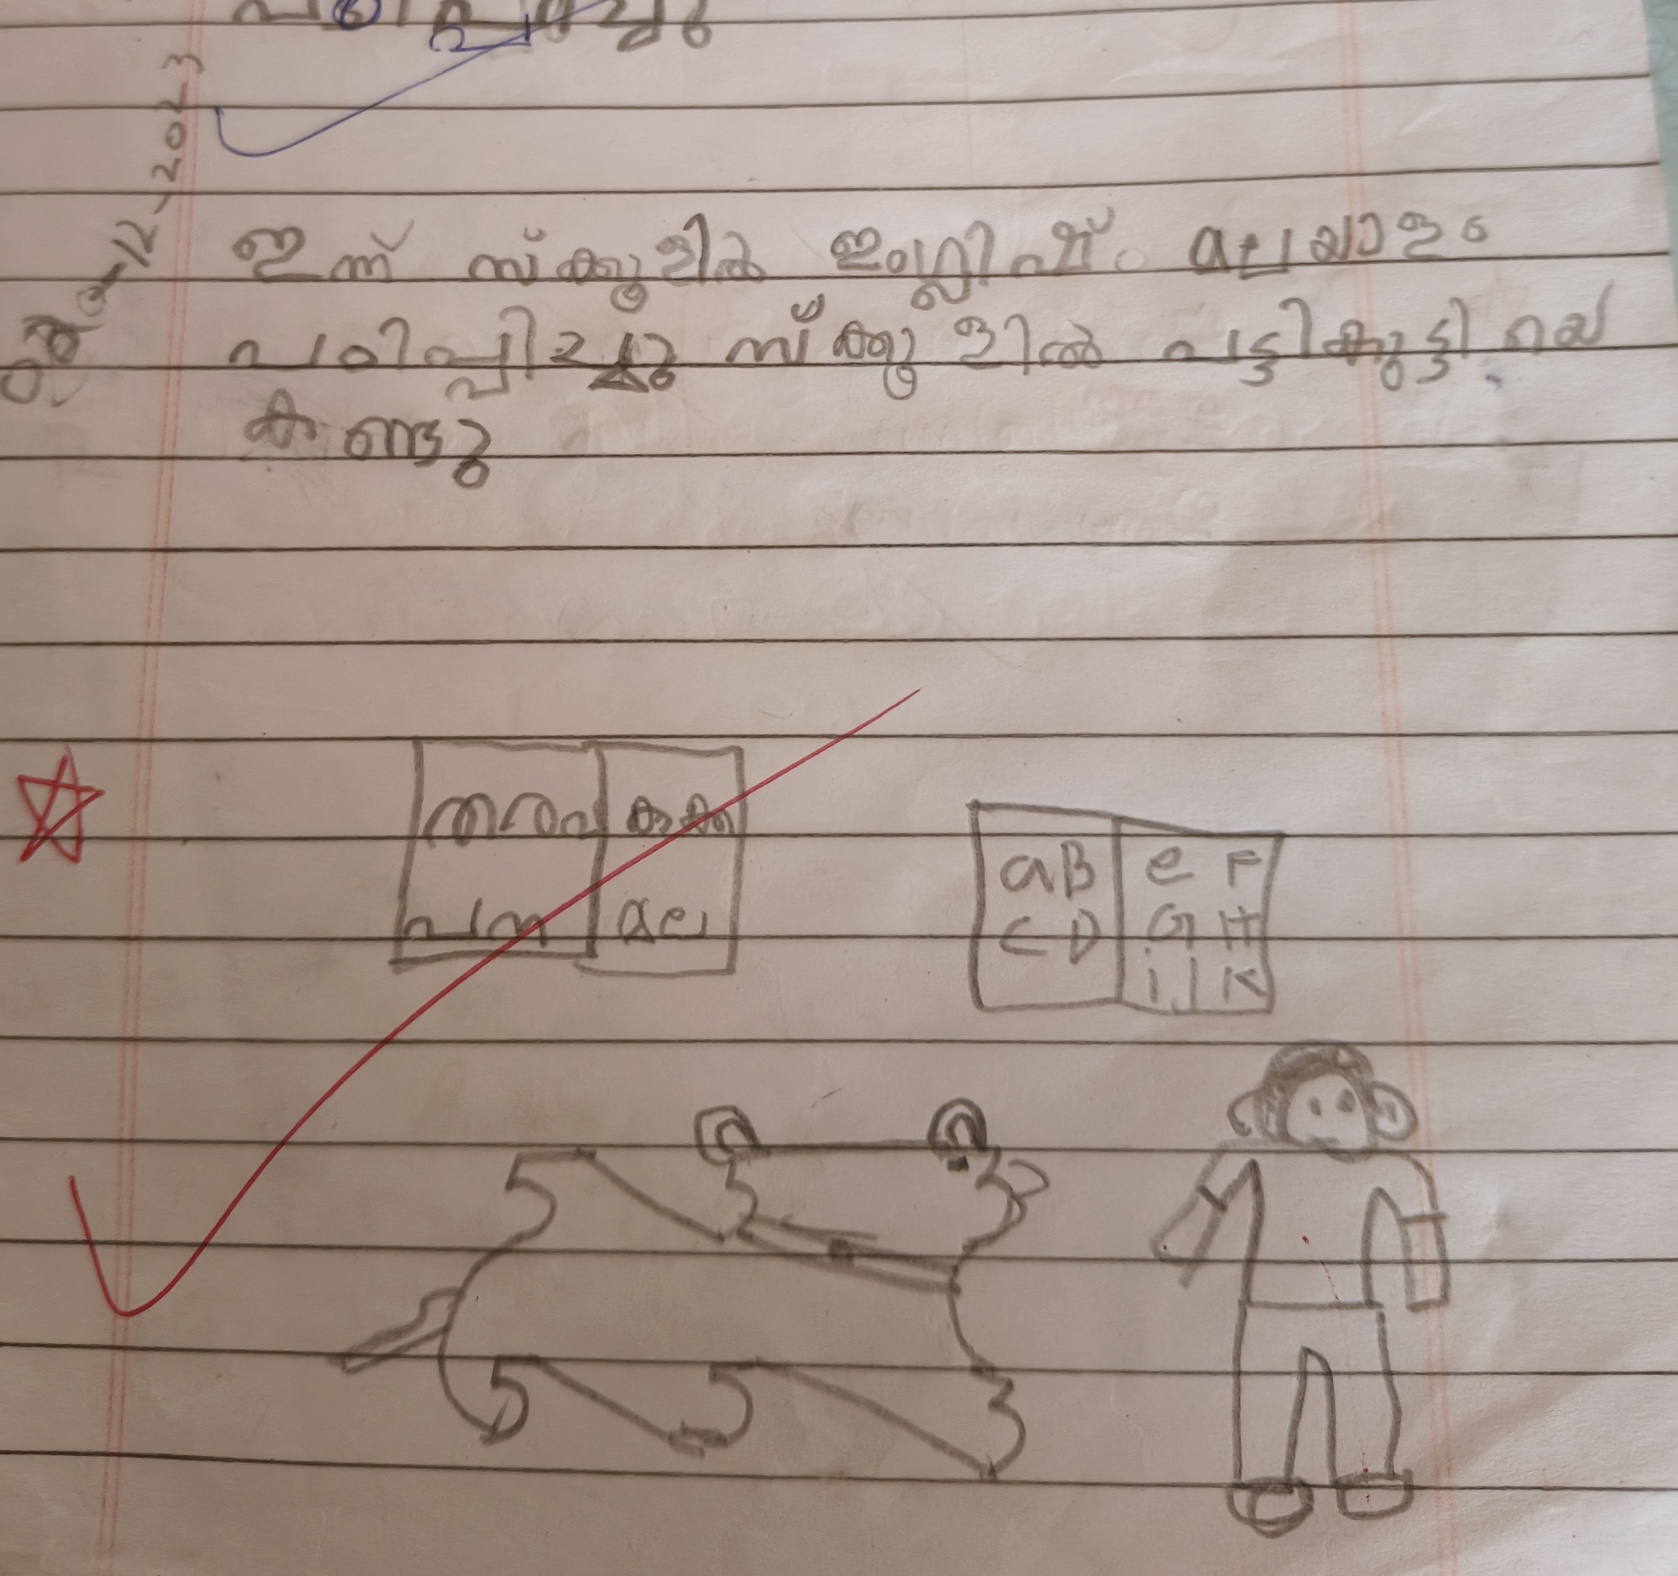 12-2023
ഇന്ന് സ്ക്കൂളിൽ ഇംഗ്ലീഷ് മലയാളം
പഠിപ്പിച്ചു സ്ക്കൂളിൽ പട്ടിക്കുട്ടിയെ
കണ്ടു
തറ
പന
മല
aB e F
C D G H
i J K